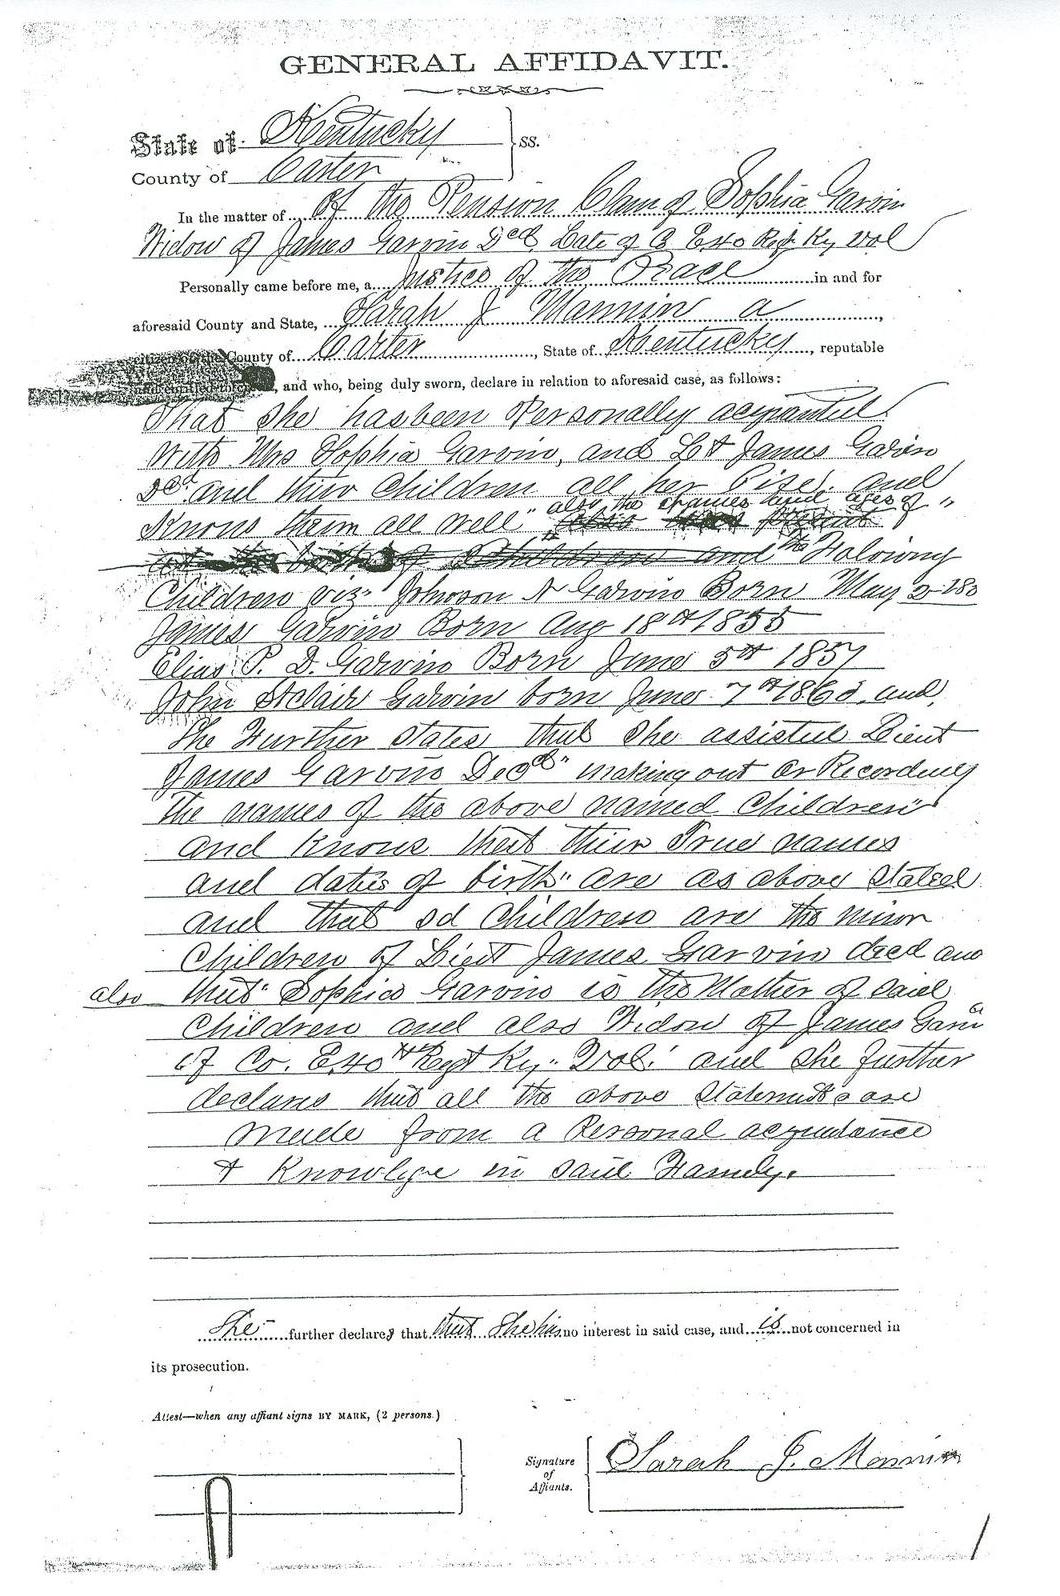 GENERAL AFFIDAVIT.
State of Kentucky
ss.
County of Carter
In the matter of of the Pension Claim of Sophia Garvin
Widow of James Garvin Decd. Late of Co E 40 Regt Ky Vol
Personally came before me, a Justice of the Peace in and for
aforesaid County and State, Sarah J Mannin a
citizen of the County of Carter, State of Kentucky, reputable
and who, being duly sworn, declare in relation to aforesaid case, as follows:
That She hasbeen Personally acquanted
With Mrs Sophia Garvin, and Lt James Garvin
Decd and thier Children all her Life. and
also the names and ages of "
Knows them all well"
and the Folowing
Children viz" Johnson N Garvin Born May 2 185
James Garvin Born Aug 18th 1855
Elias P. D. Garvin Born June 5th 1857
John StClair Garvin born June 7th 186 and
She Further states that She assisted Lieut
James Garvin Decd" making out or Recording
the names of the above named Children"
and Knows that thier True names
and dates of birth" are as above stated
and that sd Children are the minor
Children of Lieut James Garvin decd and
also that Sophia Garvin is the Mother of said
Children and also Widow of James Garvin
of Co. E 40th Regt Ky. Vol. and She further
declares that all the above Statements are
made from a Personal acquantance
& Knowlege in said Family.
She further declares that that She has no interest in said case, and is not concerned in
its prosecution.
Attest—when any affiant signs BY MARK, (2 persons.)
Signature
of
Affiants.
Sarah J. Mannin